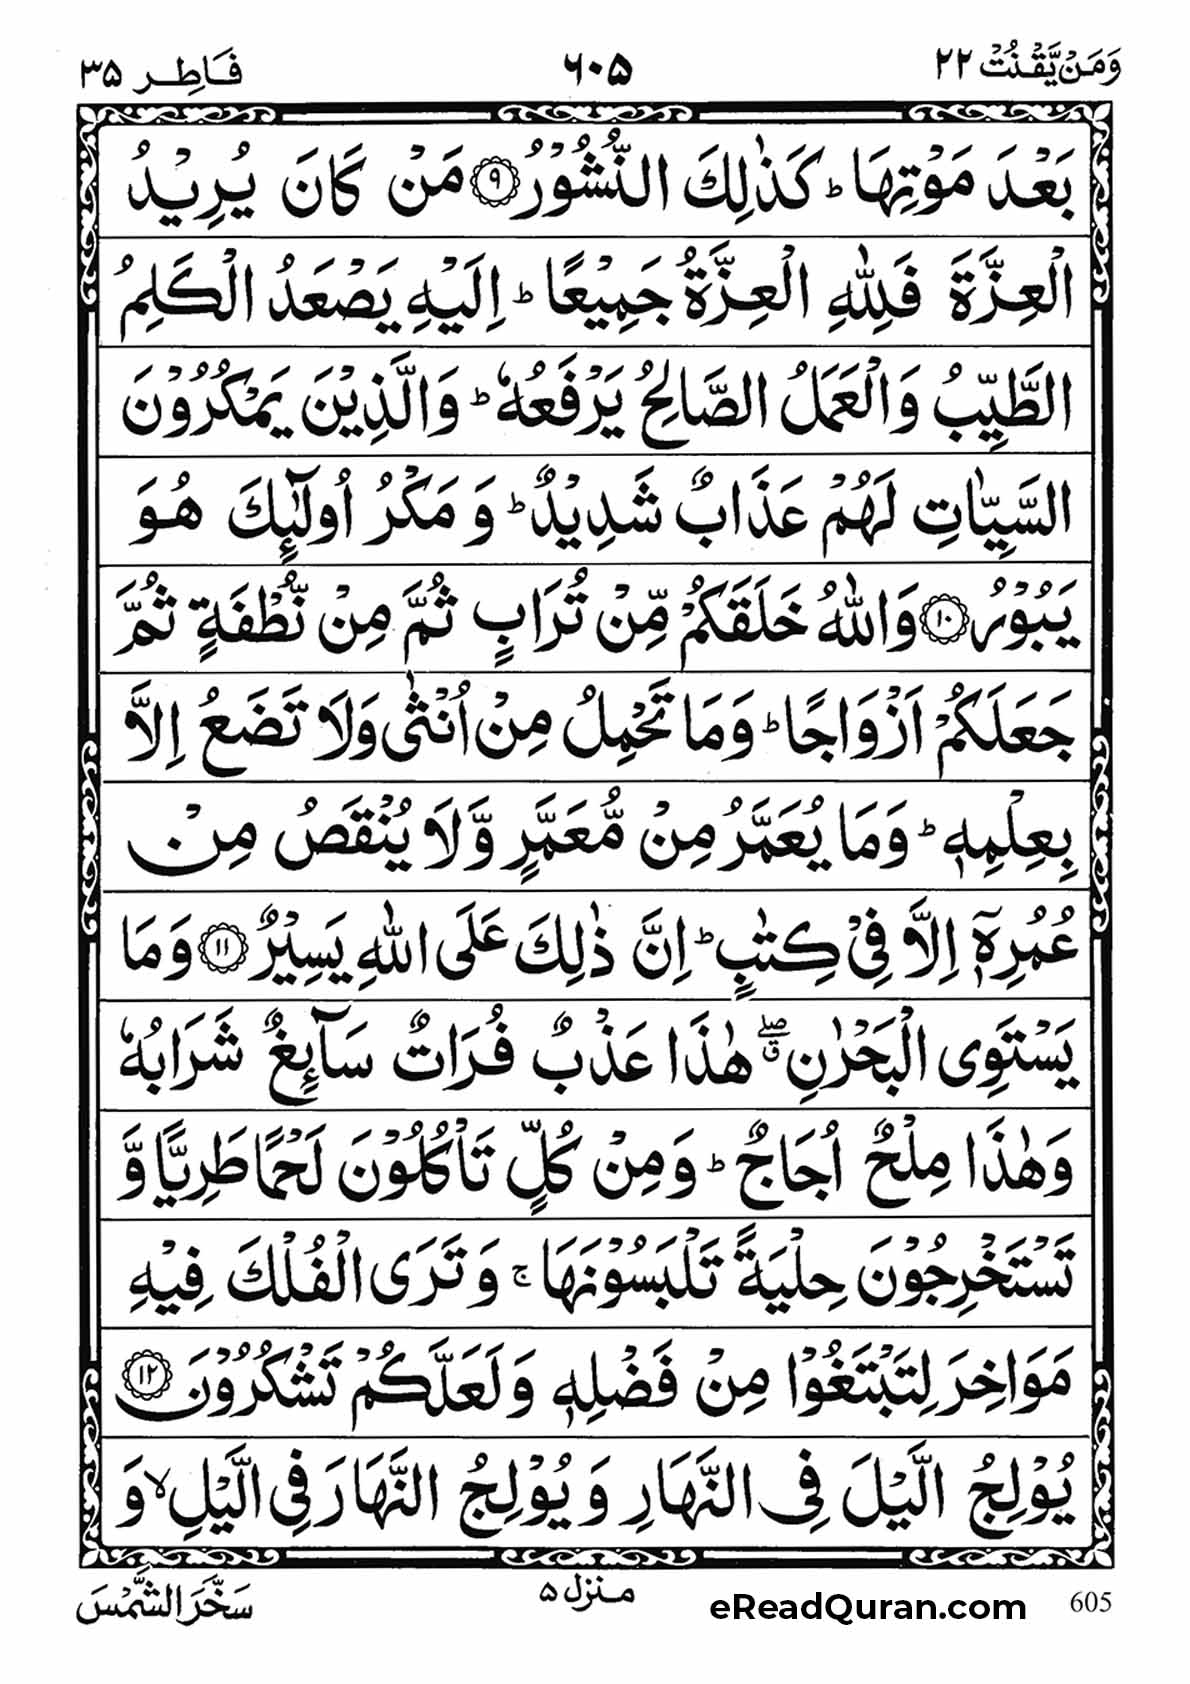 وَمَنْ يَّقْنُتْ ٢٢
٦٠٥
فَاطِر ٣٥
بَعْدَ مَوْتِهَا ؕ كَذٰلِكَ النُّشُوْرُ ۹ مَنْ كَانَ يُرِيْدُ
الْعِزَّةَ فَلِلّٰهِ الْعِزَّةُ جَمِيْعًا ؕ اِلَيْهِ يَصْعَدُ الْكَلِمُ
الطَّيِّبُ وَالْعَمَلُ الصَّالِحُ يَرْفَعُهٗ ؕ وَالَّذِيْنَ يَمْكُرُوْنَ
السَّيِّاٰتِ لَهُمْ عَذَابٌ شَدِيْدٌ ؕ وَ مَكْرُ اُولٰٓئِكَ هُوَ
يَبُوْرُ ۱۰ وَاللّٰهُ خَلَقَكُمْ مِّنْ تُرَابٍ ثُمَّ مِنْ نُّطْفَةٍ ثُمَّ
جَعَلَكُمْ اَزْوَاجًا ؕ وَمَا تَحْمِلُ مِنْ اُنْثٰى وَلَا تَضَعُ اِلَّا
بِعِلْمِهٖ ؕ وَمَا يُعَمَّرُ مِنْ مُّعَمَّرٍ وَّلَا يُنْقَصُ مِنْ
عُمُرِهٖٓ اِلَّا فِيْ كِتٰبٍ ؕ اِنَّ ذٰلِكَ عَلَى اللّٰهِ يَسِيْرٌ ۱۱ وَمَا
يَسْتَوِى الْبَحْرٰنِ ۖق هٰذَا عَذْبٌ فُرَاتٌ سَآئِغٌ شَرَابُهٗ
وَهٰذَا مِلْحٌ اُجَاجٌ ؕ وَمِنْ كُلٍّ تَاْكُلُوْنَ لَحْمًا طَرِيًّا وَّ
تَسْتَخْرِجُوْنَ حِلْيَةً تَلْبَسُوْنَهَا ۚ وَتَرَى الْفُلْكَ فِيْهِ
مَوَاخِرَ لِتَبْتَغُوْا مِنْ فَضْلِهٖ وَلَعَلَّكُمْ تَشْكُرُوْنَ ۱۲
يُوْلِجُ الَّيْلَ فِى النَّهَارِ وَيُوْلِجُ النَّهَارَ فِى الَّيْلِ ۙ وَ
سَخَّرَ الشَّمْسَ
منزل ۵
eReadQuran.com
605